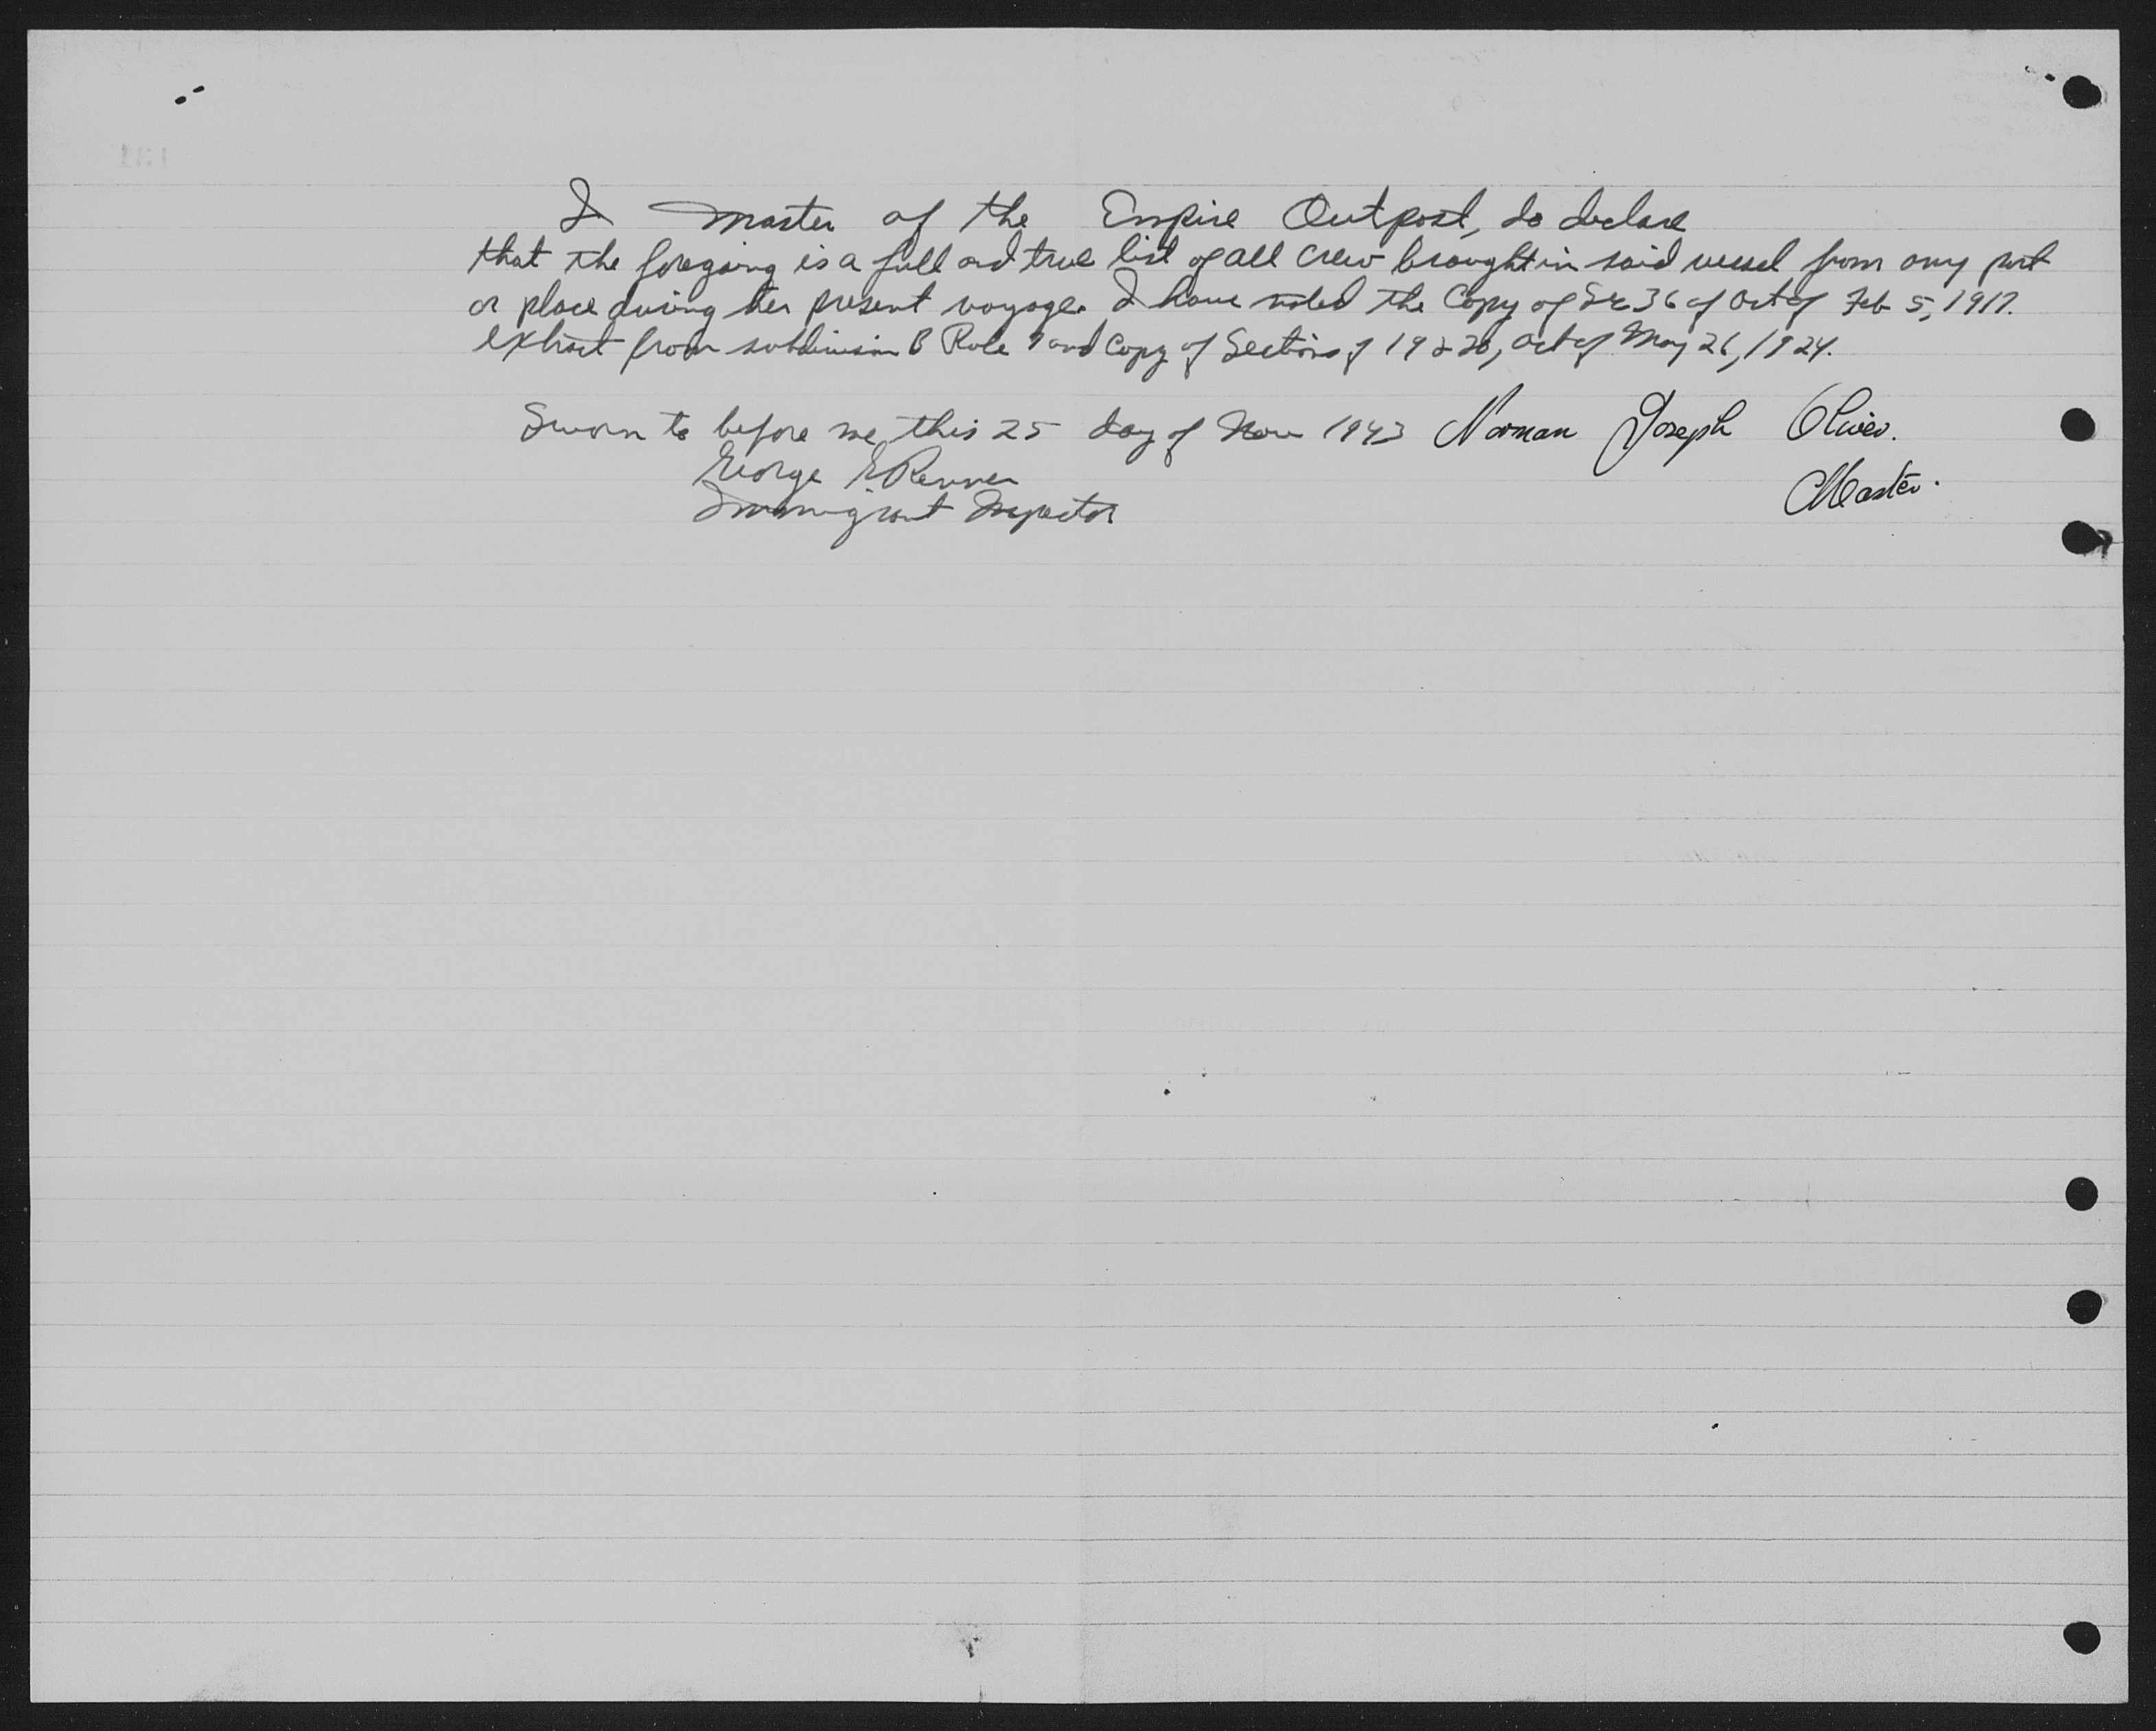 I Master of the Empire Outpost, do declare
that the foregoing is a full and true list of all crew brought in said vessel from any port
or place during her present voyage. I have noted the Copy of Sec 36 of Act of Feb 5, 1917.
extract from subdivision B Rule 7 and Copy of Sections of 19 & 20, Act of May 26, 1924.
Sworn to before me this 25 day of Nov 1943 Norman Joseph Oliver.
George E Renner
Master.
Immigrant Inspector